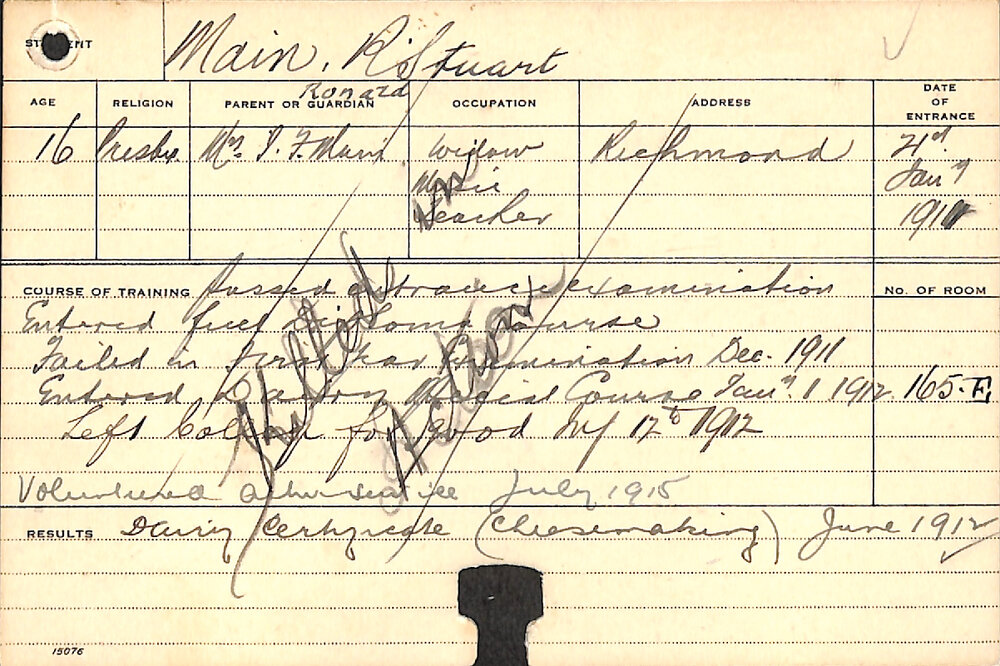 STUDENT Main, R. Stuart
Ronard
AGE RELIGION PARENT OR GUARDIAN OCCUPATION ADDRESS DATE OF ENTRANCE
16 Presby. Mrs. F. Main Widow Richmond 21st
Music Jany
Teacher 1911
COURSE OF TRAINING Passed entrance examination No. OF ROOM
Entered full Diploma Course
Failed in First Year Examination Dec. 1911
Entered Dairy Special Course Jany. 1 1912 165.E.
Left College for Good July 12th 1912
Volunteered active service July 1915
Killed in action
RESULTS Dairy Certificate (Cheesemaking) June 1912
15076